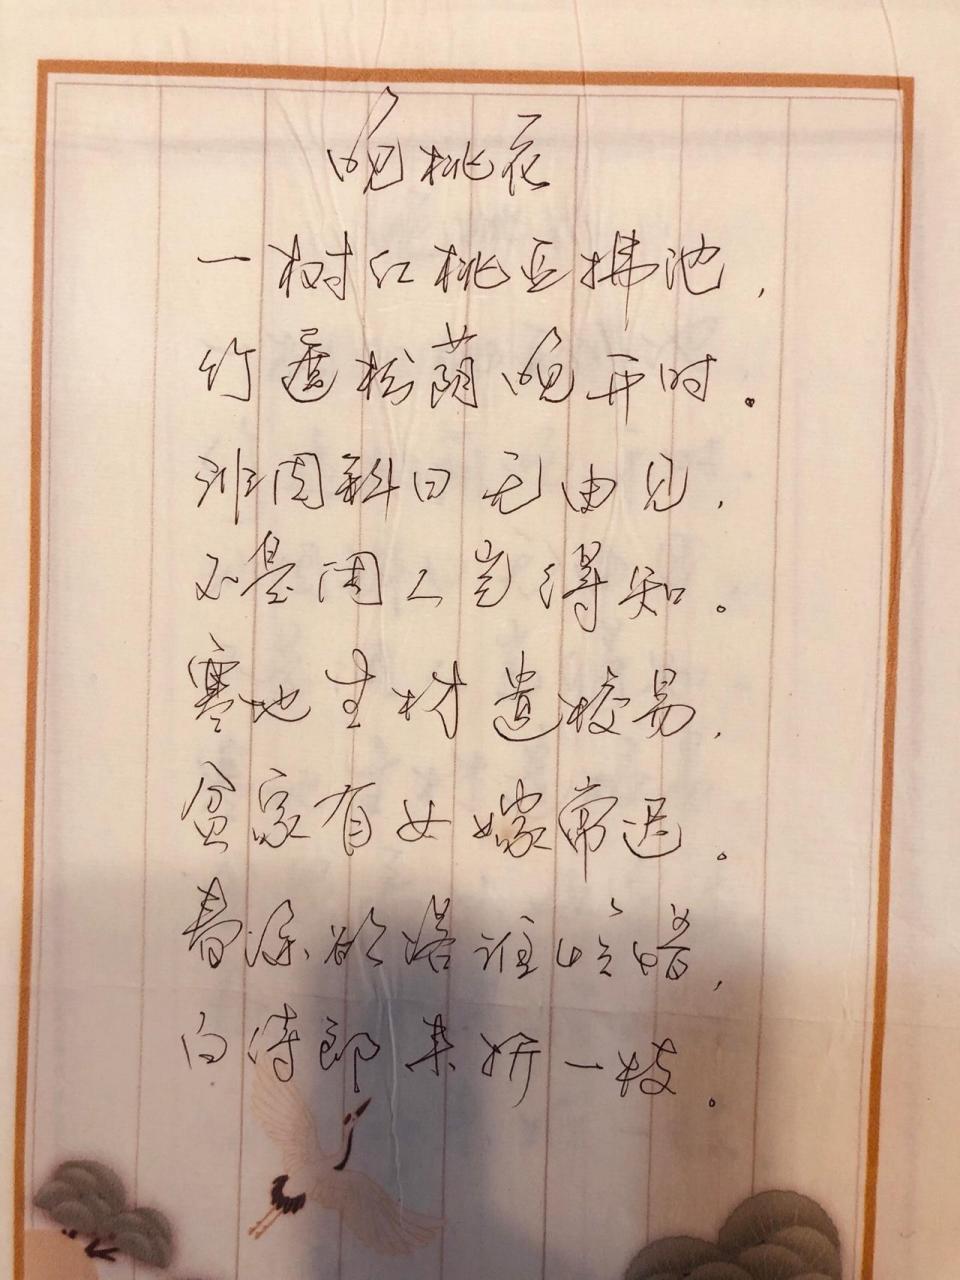 晚桃花
一树红桃亚拂池，
竹遮松荫晚开时。
非因斜日无由见，
不是闲人岂得知。
寒地生材遗校易，
贫家有女嫁常迟。
春深欲落谁怜惜，
白侍郎来折一枝。